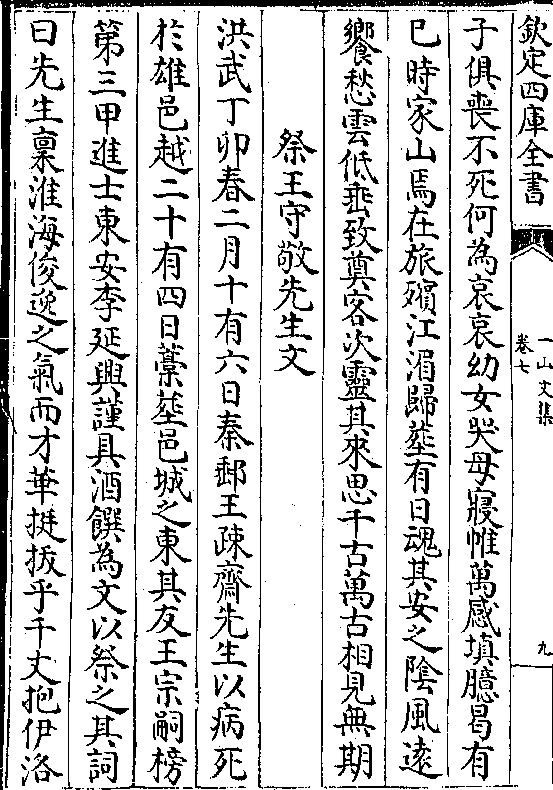 欽定四庫全書
一山文集
卷七
九
子俱喪不死何為哀哀幼女哭母寢帷萬感填臆曷有
已時家山焉在旅殯江湄歸塟有日魂其安之陰風逺
饗愁雲低垂致奠客次靈其來思千古萬古相見無期
祭王守敬先生文
洪武丁卯春二月十有六日秦郵王疎齋先生以病死
於雄邑越二十有四日藁塟邑城之東其友王宗嗣榜
第三甲進士東安李延興謹具酒饌為文以祭之其詞
曰先生稟淮海俊逸之氣而才華挺㧞乎千丈抱伊洛